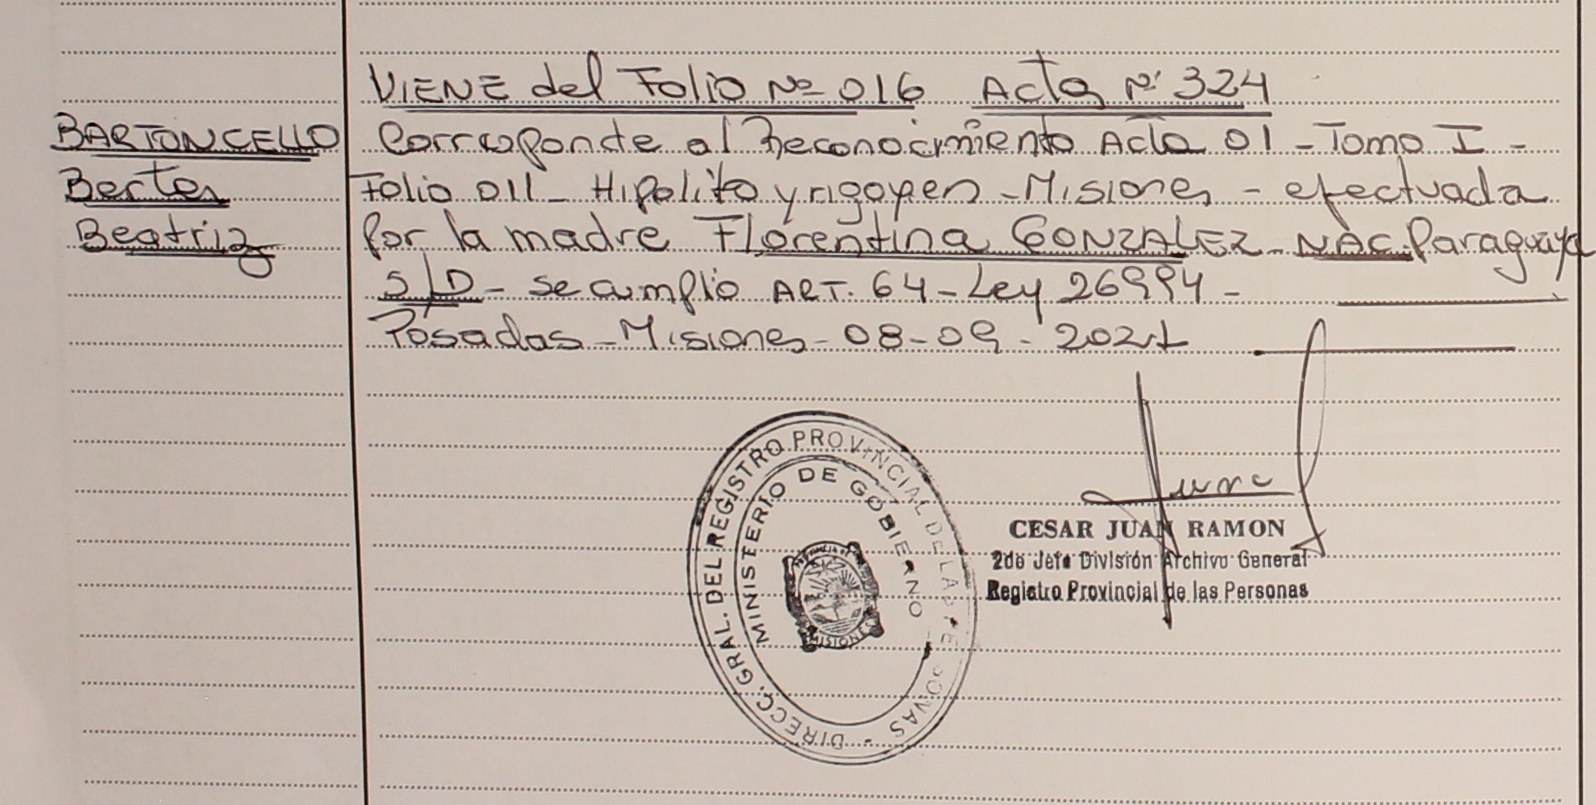 VIENE del Folio Nº 016 Acta Nº 324
BARTONCELLO
Berta
Beatriz
Corresponde al Reconocimiento Acta 01 - Tomo I -
Folio 011 - Hipolito yrigoyen - Misiones - efectuada
por la madre Florentina GONZALEZ - NAC. Paraguaya
S/D - se cumplio ART. 64 - Ley 26994 -
Posadas - Misiones - 08-09-2021
DIRECC. GRAL. DEL REGISTRO PROVINCIAL DE LAS PERSONAS -
MINISTERIO DE GOBIERNO
MISIONES
CESAR JUAN RAMON
2do Jefe División Archivo General
Registro Provincial de las Personas